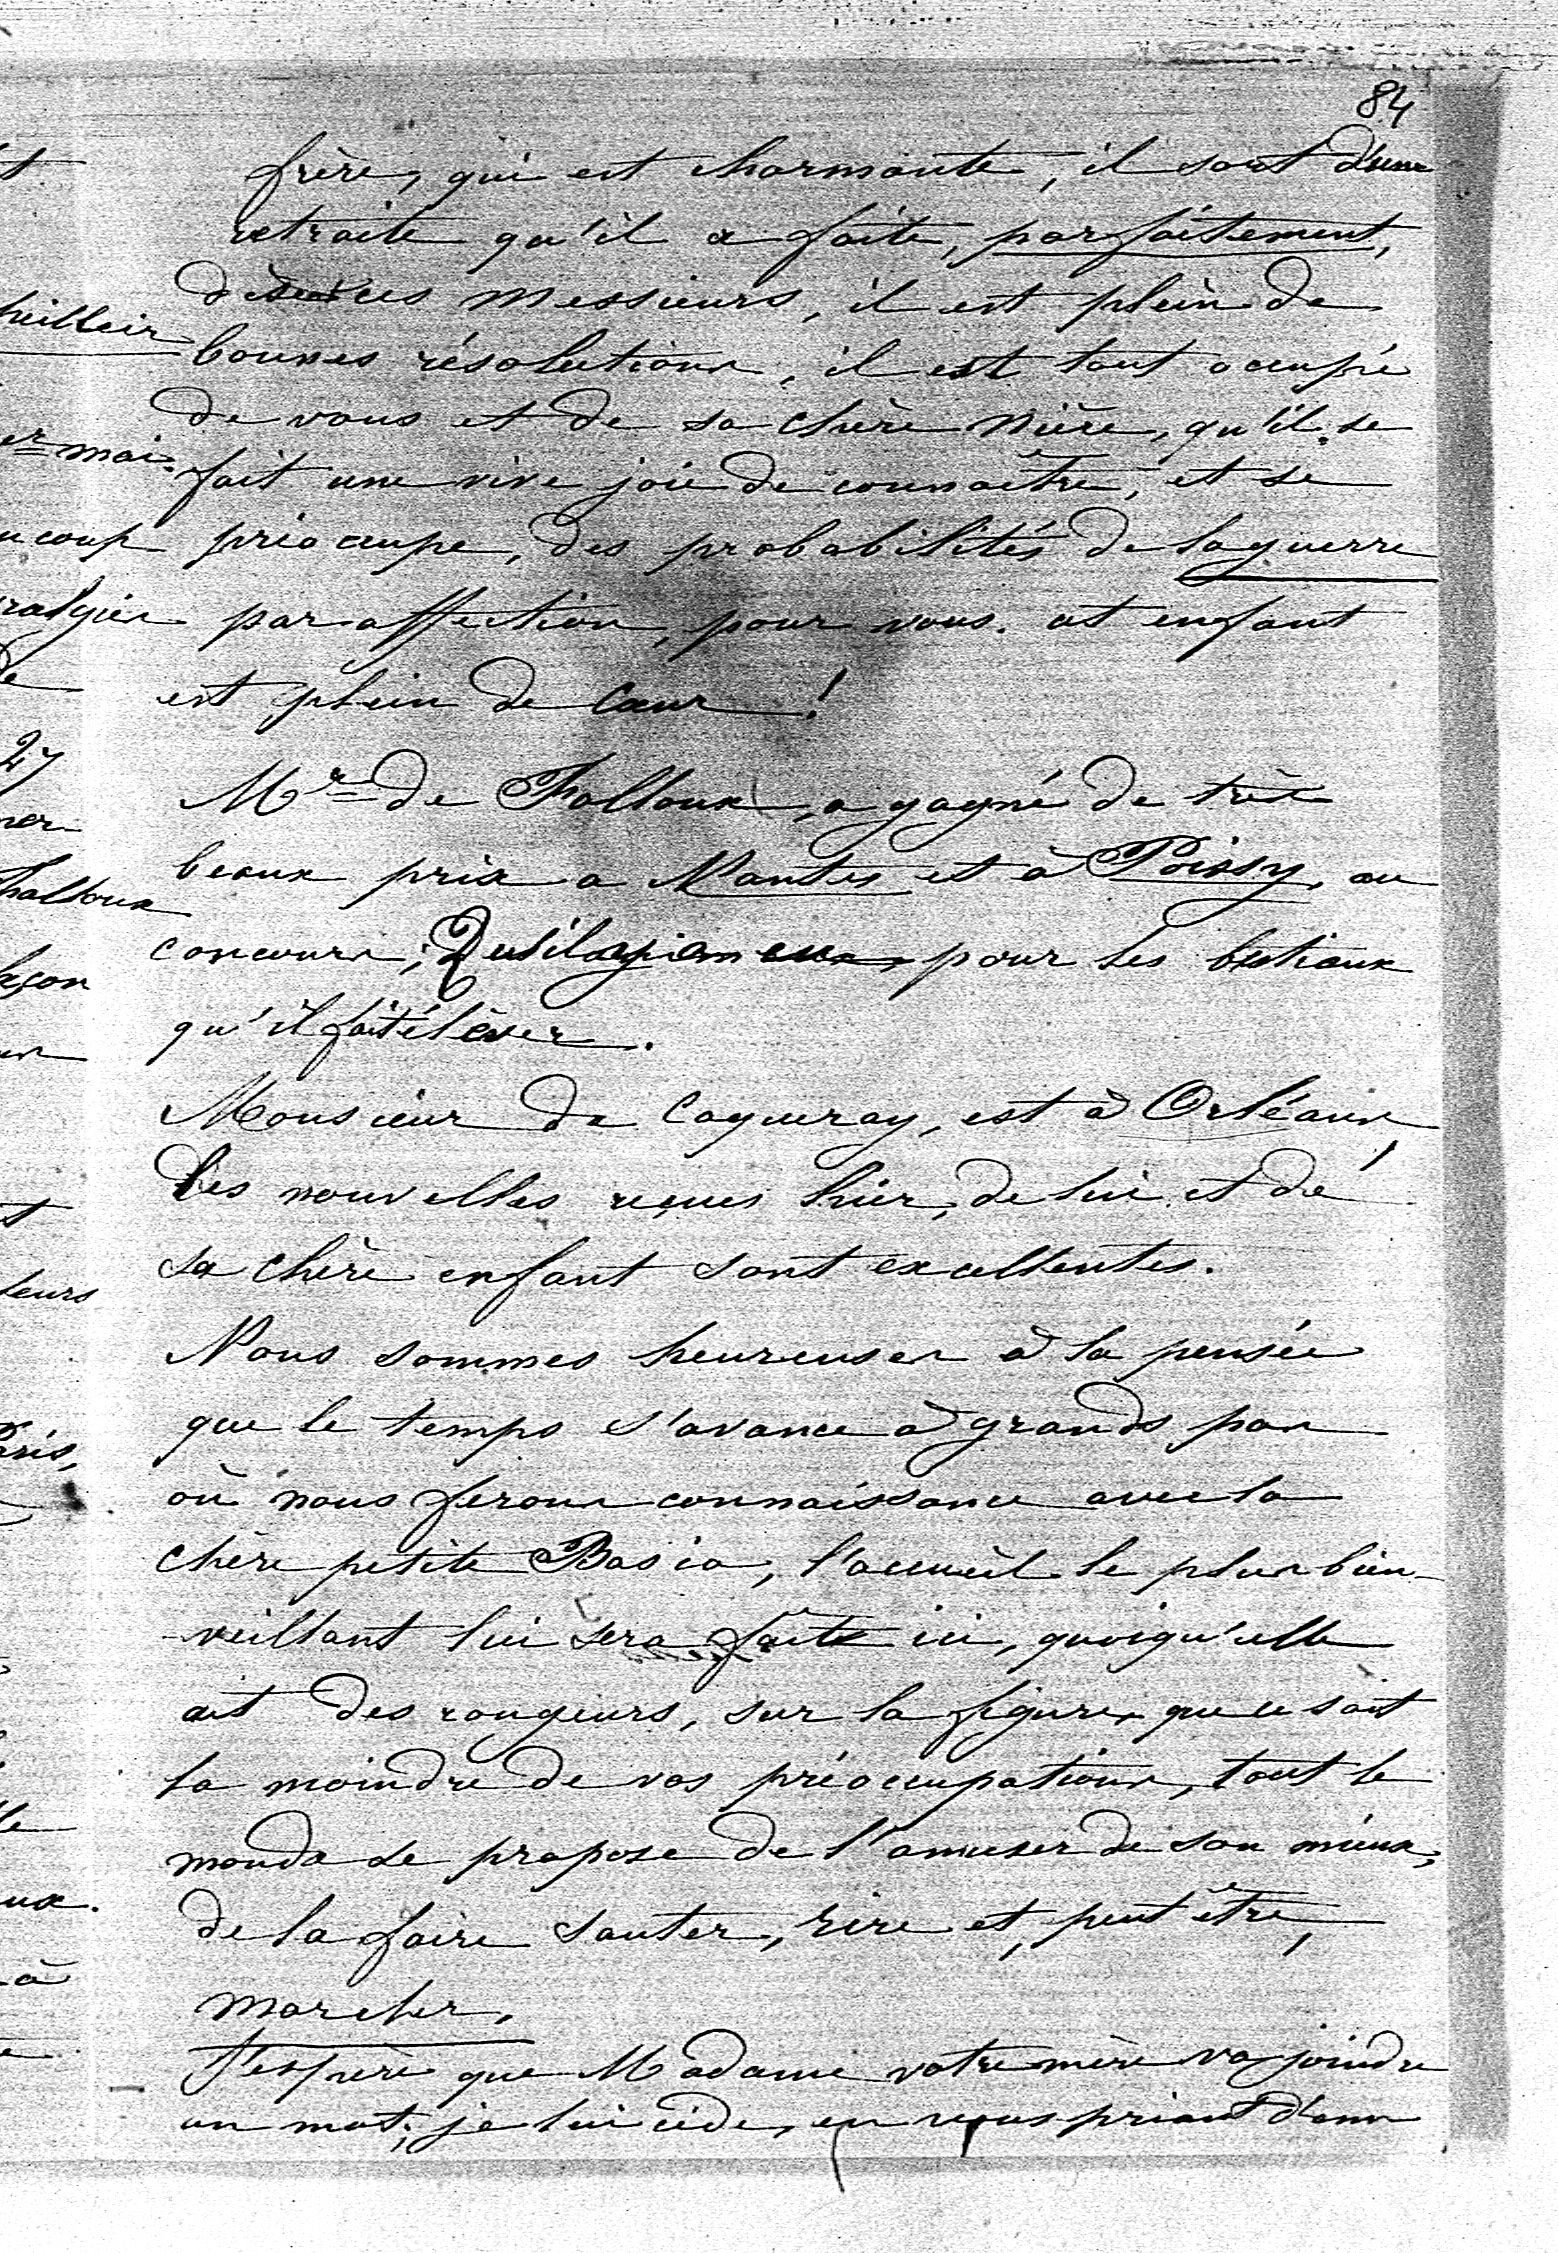 84
frère, qui est charmante, il sort d'une
retraite qu'il a faite, parfaitement,
ces messieurs, il est plein de
bonnes résolutions, il est tout occupé
de vous et de sa chère nièce, qu'il se
fait une vive joie de connaître, et se
préocupe, des probabilités de la guerre
par affection, pour vous. cet enfant
est plein de cœur !
Mr de Falloux, a gagné de très
beaux prix a Nantes et à Poissy, au
concours, pour les bestiaux
qu'il fait élever.
Monsieur de Caqueray, est à Orléans,
les nouvelles reçues hier, de lui et de
sa chère enfant sont excellentes.
Nous sommes heureuses à la pensée
que le temps s'avance à grands pas
où nous ferons connaissance avec la
chère petite Basia, l'accueil le plus bien-
veillant lui sera faite ici, quoiqu'elle
ait des rougeurs, sur la figure, que ce soit
la moindre de vos préoccupations, tout le
monde se propose de l'amuser de son mieux,
de la faire sauter, rire et, peut être,
marcher.
J'espère que Madame votre mère va joindre
un mot; je lui cède, en vous priant d'em